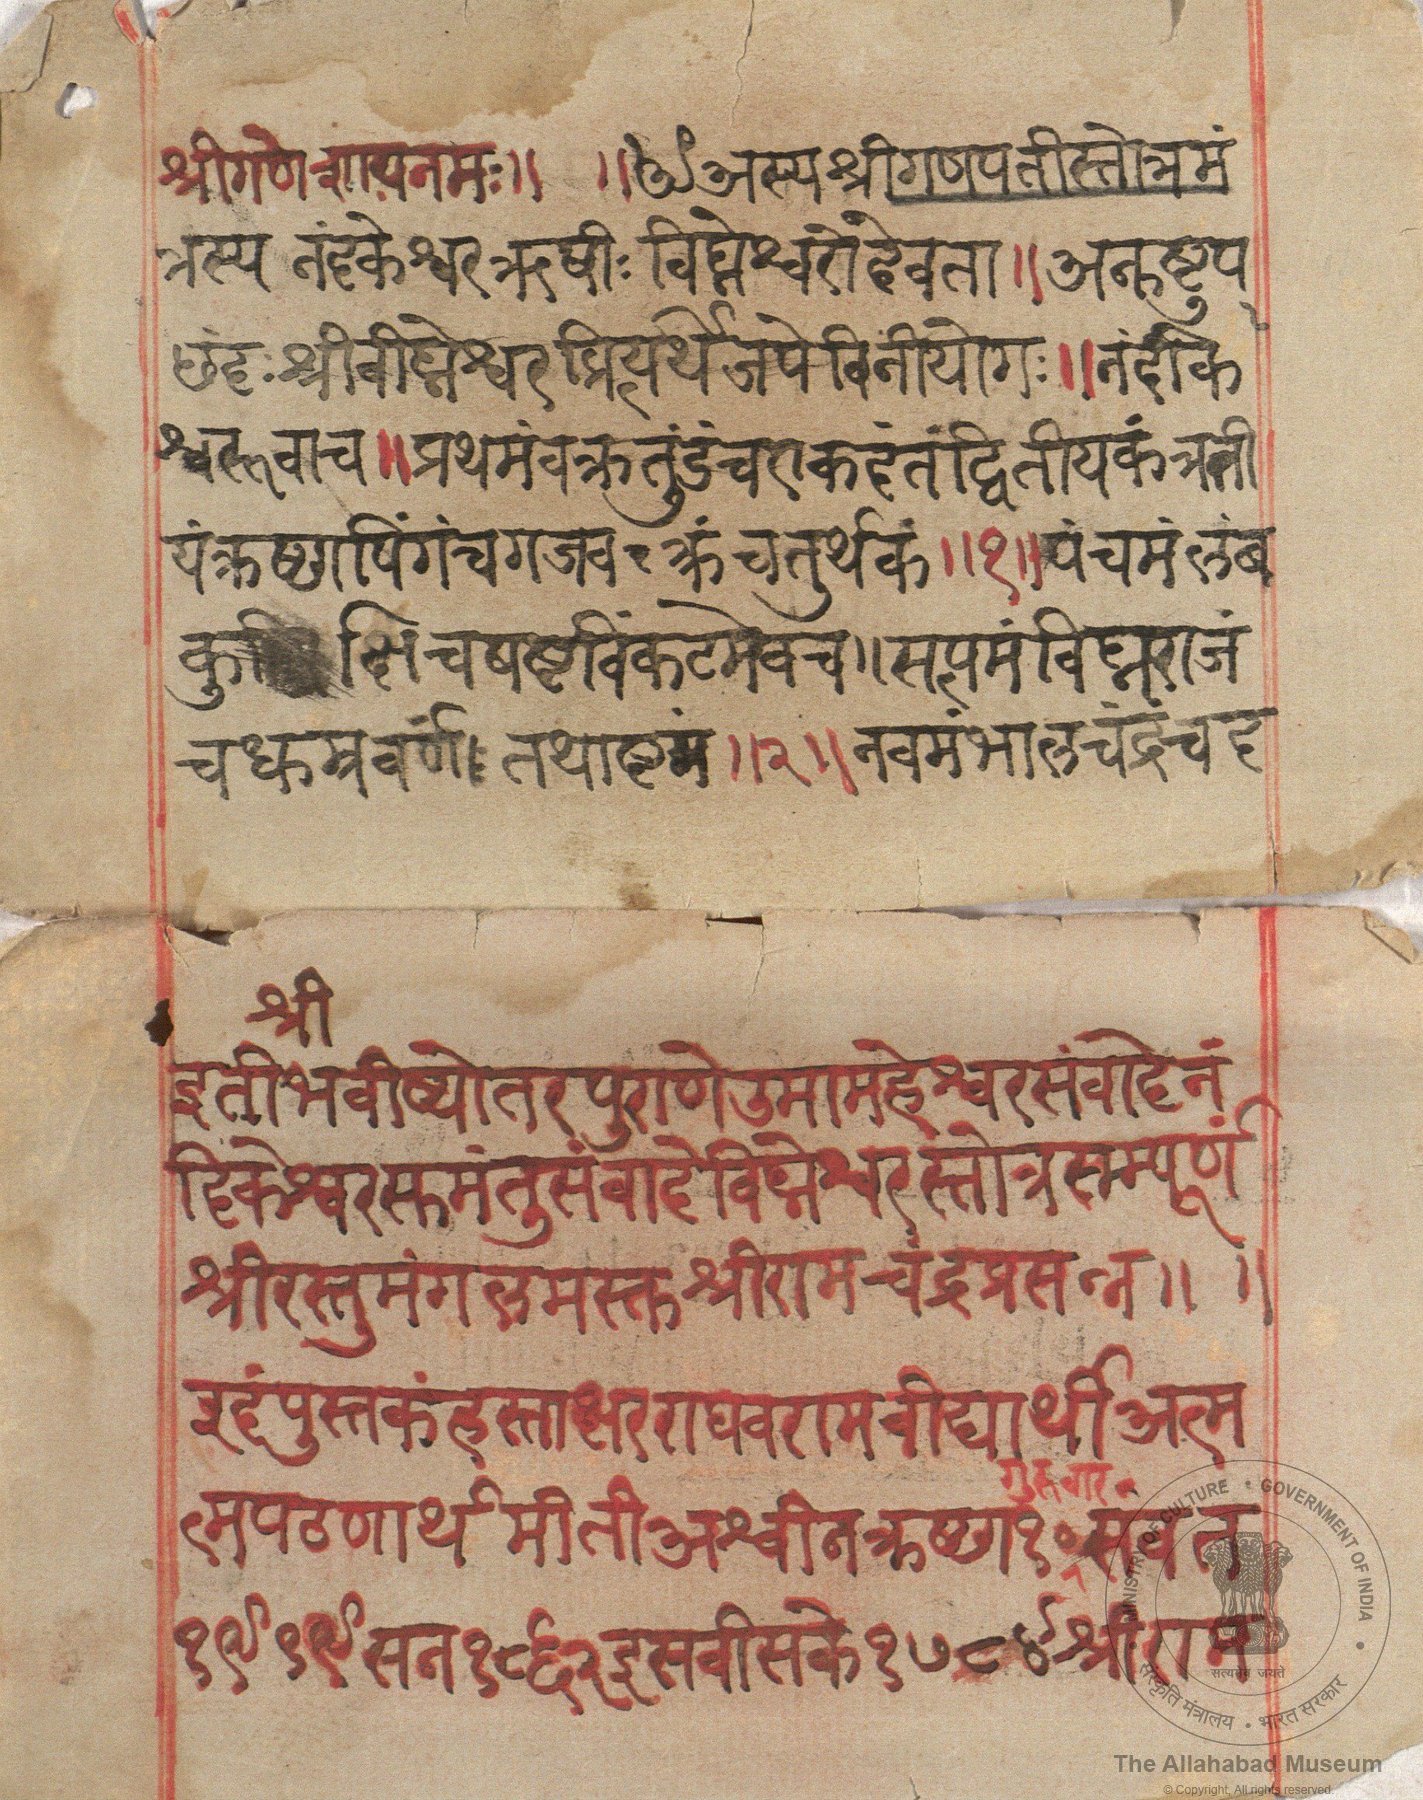 श्रीगणेशायनमः॥ ॥ॐअस्यश्रीगणपतीस्तोत्रमं
त्रस्य नंदकेश्वरऋषीः विघ्नेश्वरोदेवता॥अनुष्टुप्
छंदः श्रीवीघ्नेश्वरप्रित्यर्थेजपेविनीयोगः॥नंदीके
श्वरूवाच॥प्रथमंवक्रतुंडंचएकदंतंद्वितीयकंत्रती
यंक्रष्णपिंगंचगजवक्त्रंचतुर्थकं॥१॥पंचमंलंब
कुक्षिचषष्टविंकटमेवच॥सप्तमंविघ्नराजं
चधुम्रवर्णं तथाष्टमं॥२॥नवमंभालचंद्रंचद
श्री
इतीभवीष्योतरपुराणेउमामहेश्वरसंवादेनं
दिकेश्वरसनमंतुसंवादेविघ्नेश्वरस्तोत्रसम्पूर्णं
श्रीरस्तुमंगलमस्तु श्रीरामचंद्रप्रसन्न॥ ॥
इदंपुस्तकंहस्ताक्षरराघवरामवीद्यार्थीअत्म
गुरूवार
त्मपठणार्थ मीतीअश्वीनक्रष्ण१०संवत
१९१९सन१८६२इसवीसके१७८४श्रीराम
MINISTRY OF CULTURE • GOVERNMENT OF INDIA
सत्यमेव जयते
संस्कृति मंत्रालय • भारत सरकार
The Allahabad Museum
© Copyright, All rights reserved.